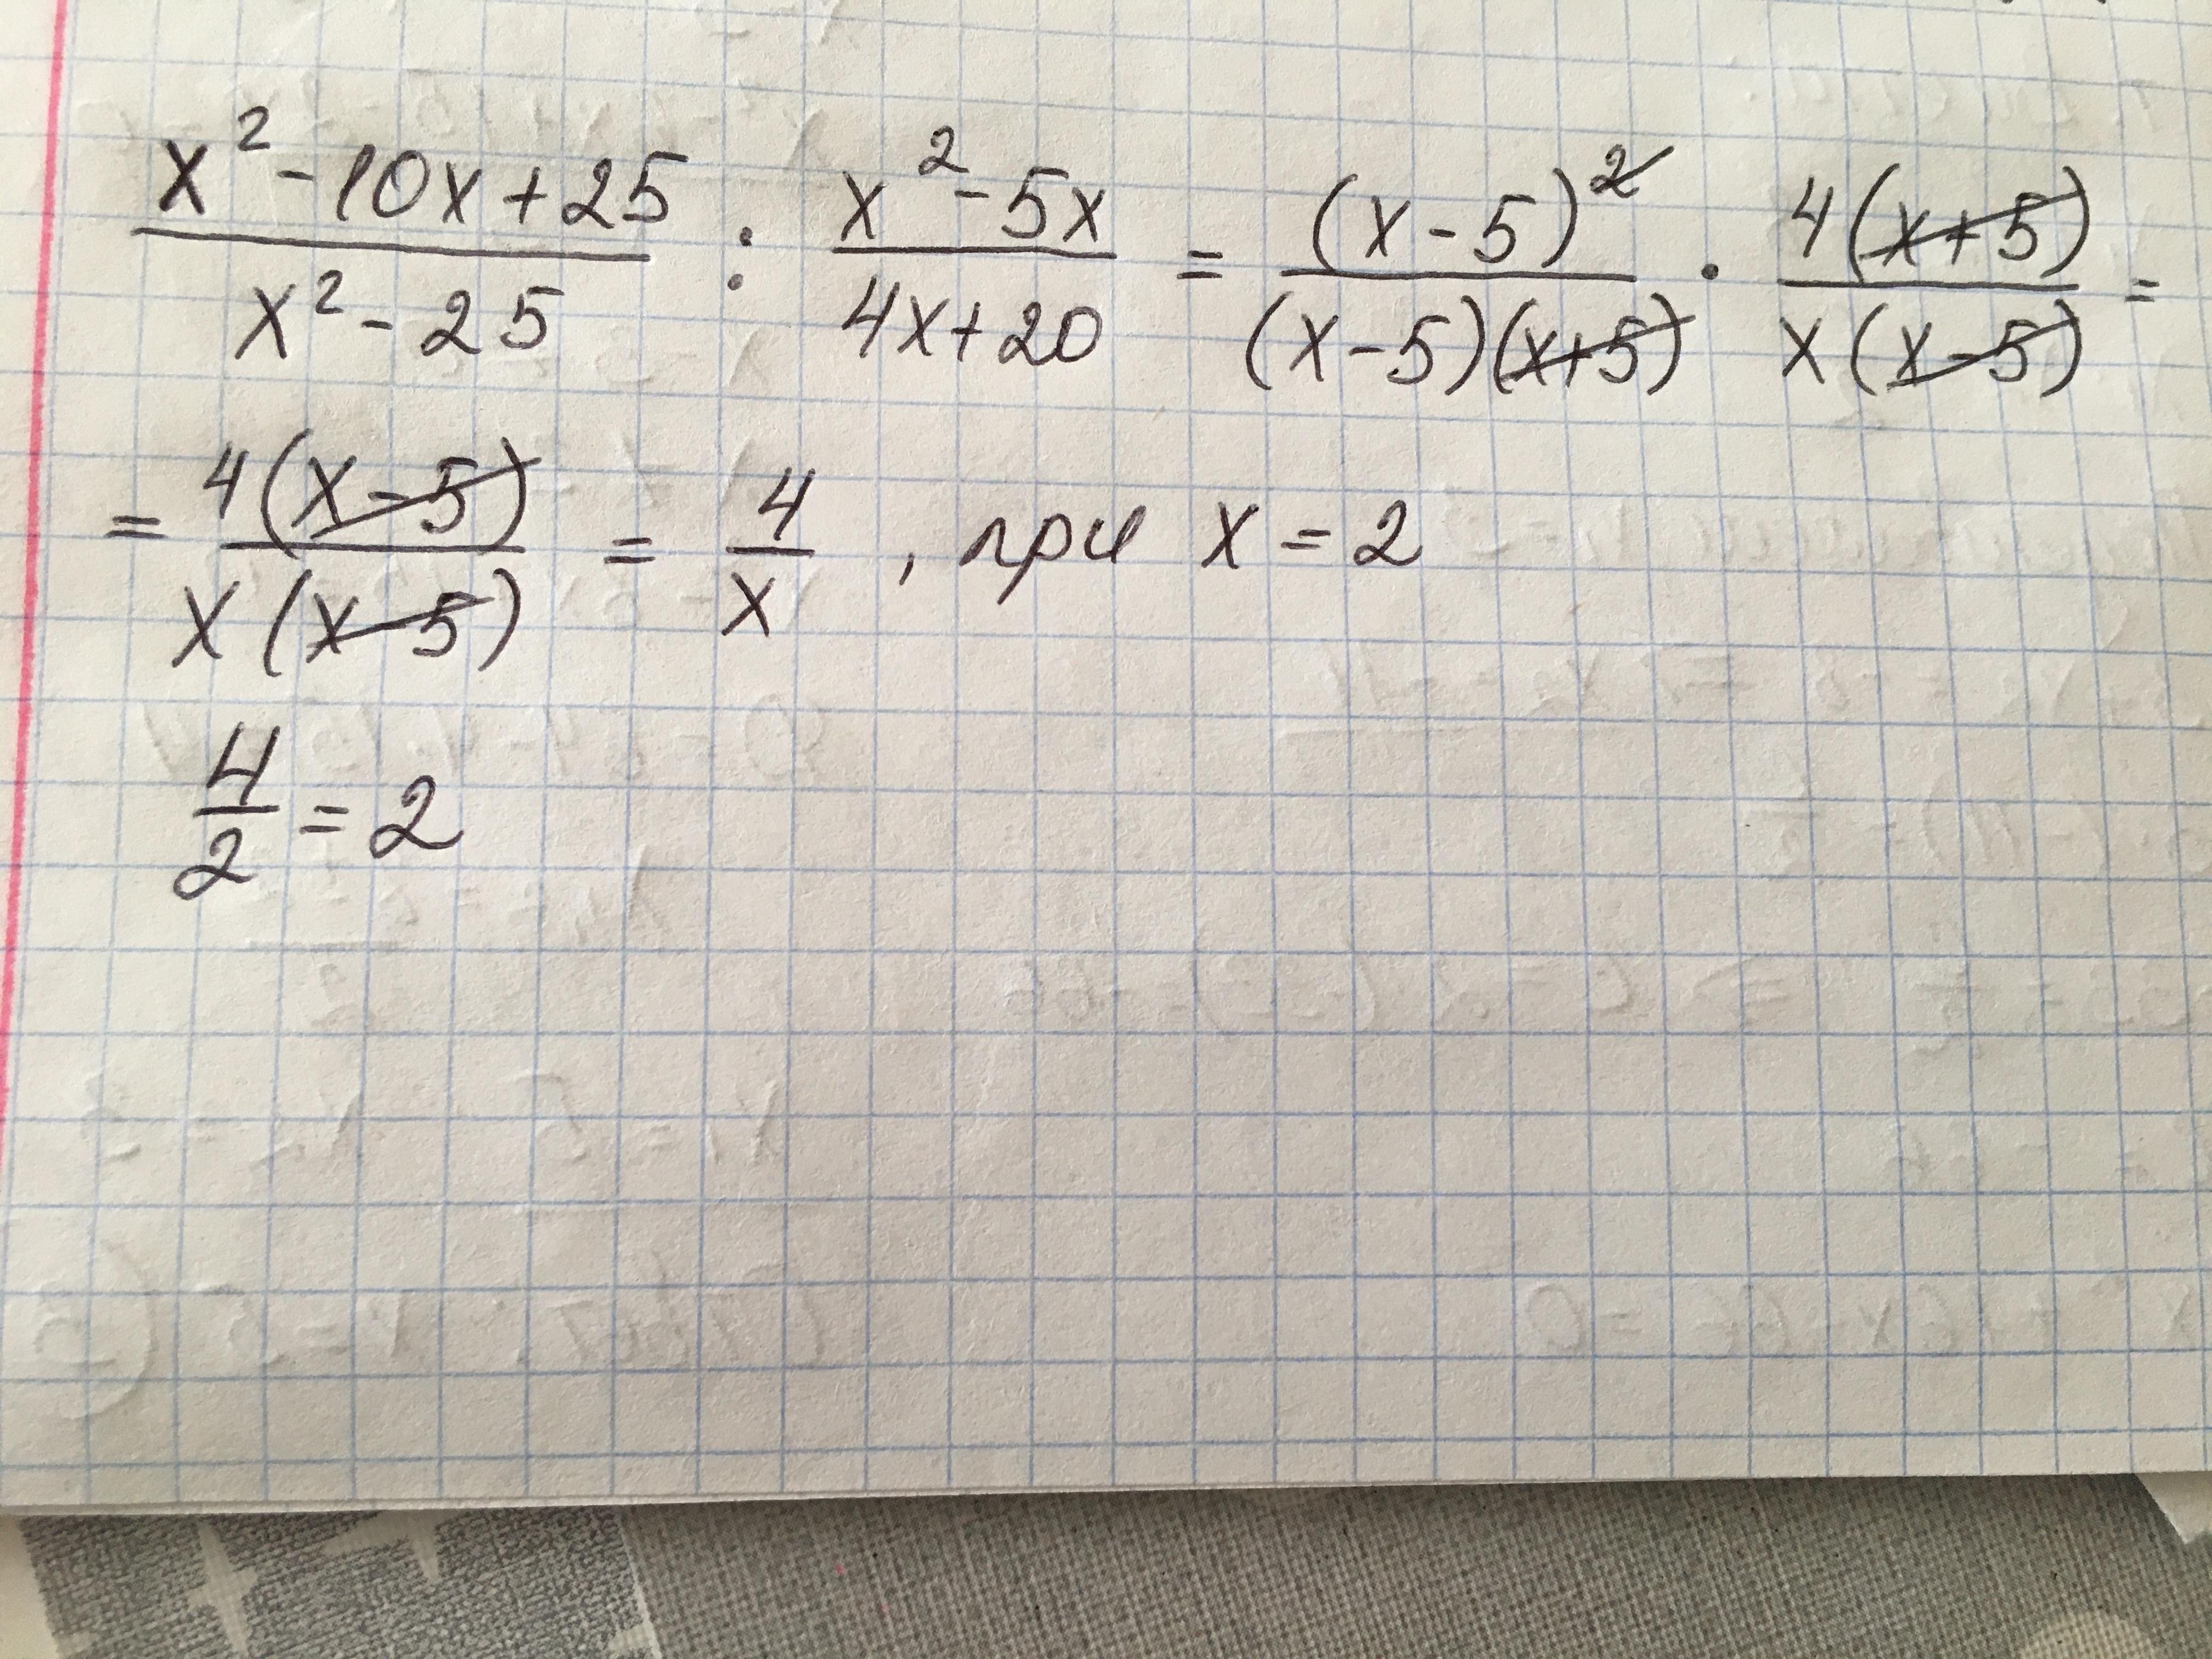 x² - 10x + 25 / x² - 25 : x² - 5x / 4x + 20 = (x - 5)² / (x - 5)(x + 5) · 4(x + 5) / x(x - 5) =
= 4(x - 5) / x(x - 5) = 4 / x , при x = 2
4 / 2 = 2